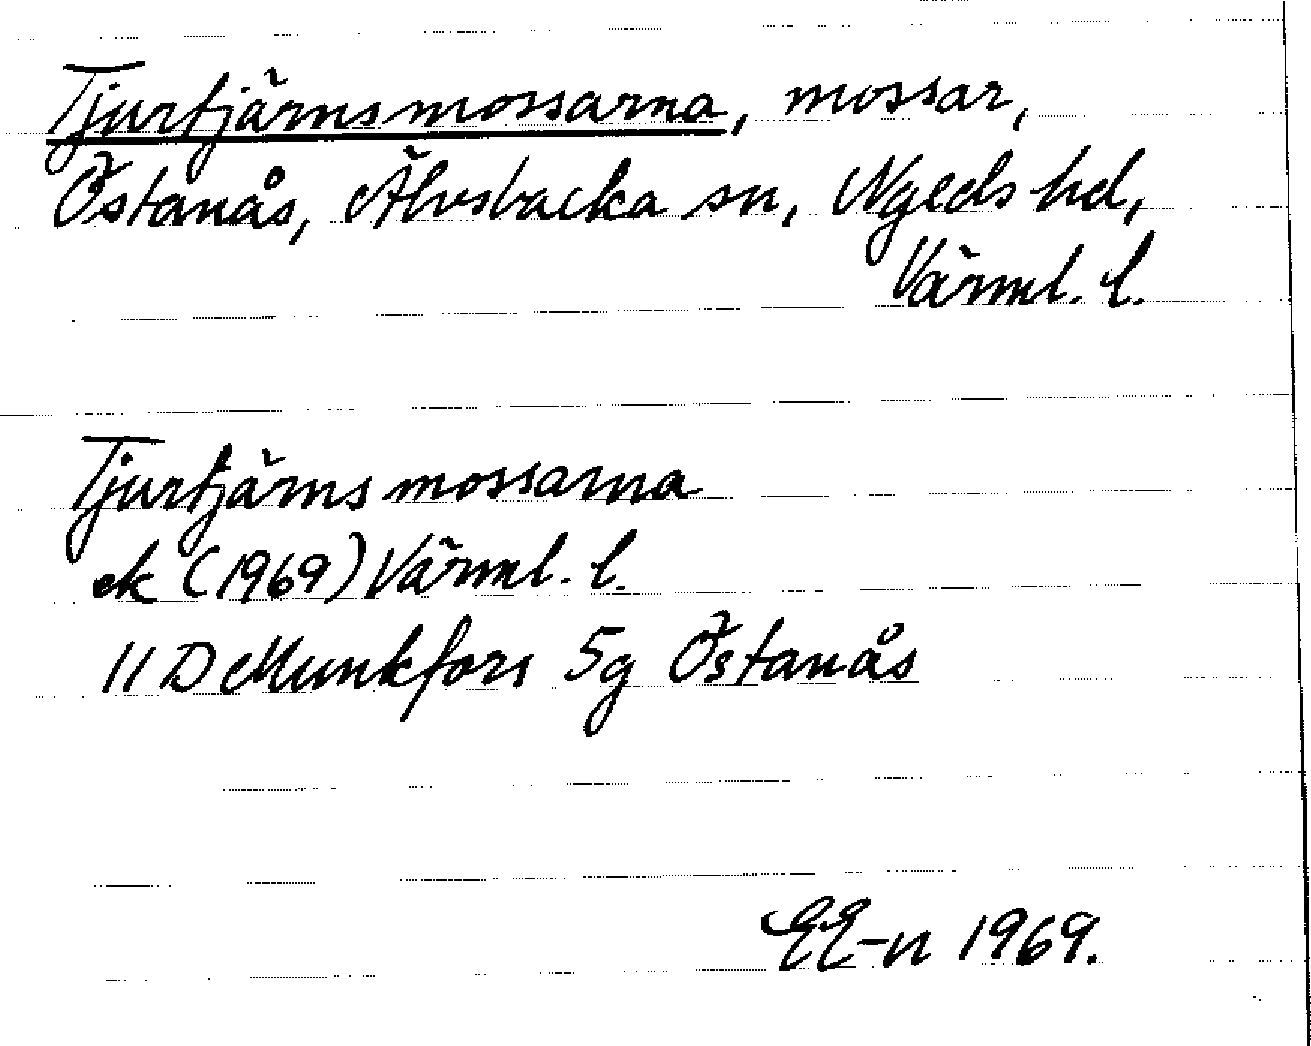 Tjurtjärnsmossarna, mossar,
Östanås, Älvsbacka sn, Nyeds hd,
Värml. l.
Tjurtjärnsmossarna
ek (1969) Värml. l.
11 D Munkfors 5g Östanås
EE-n 1969.